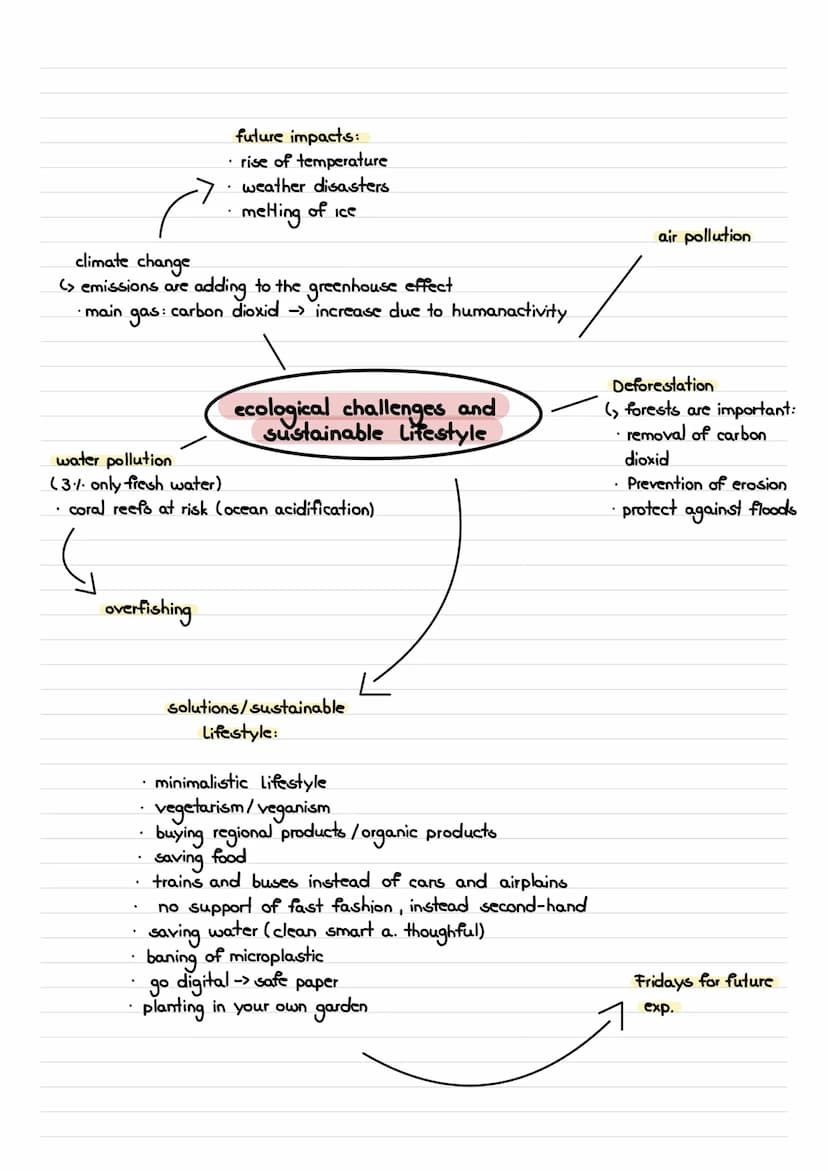 future impacts:
· rise of temperature
· weather disasters
· melting of ice
air pollution
climate change
↳ emissions are adding to the greenhouse effect
· main gas: carbon dioxid → increase due to humanactivity
ecological challenges and
sustainable lifestyle
Deforestation
↳ forests are important:
· removal of carbon
dioxid
· Prevention of erosion
· protect against floods
water pollution
(3% only fresh water)
· coral reefs at risk (ocean acidification)
overfishing
solutions/sustainable
Lifestyle:
· minimalistic Lifestyle
· vegetarism/veganism
· buying regional products/organic products
· saving food
· trains and buses instead of cars and airplains
· no support of fast fashion, instead second-hand
· saving water (clean smart a. thoughful)
· baning of microplastic
· go digital → safe paper
· planting in your own garden
Fridays for future
exp.